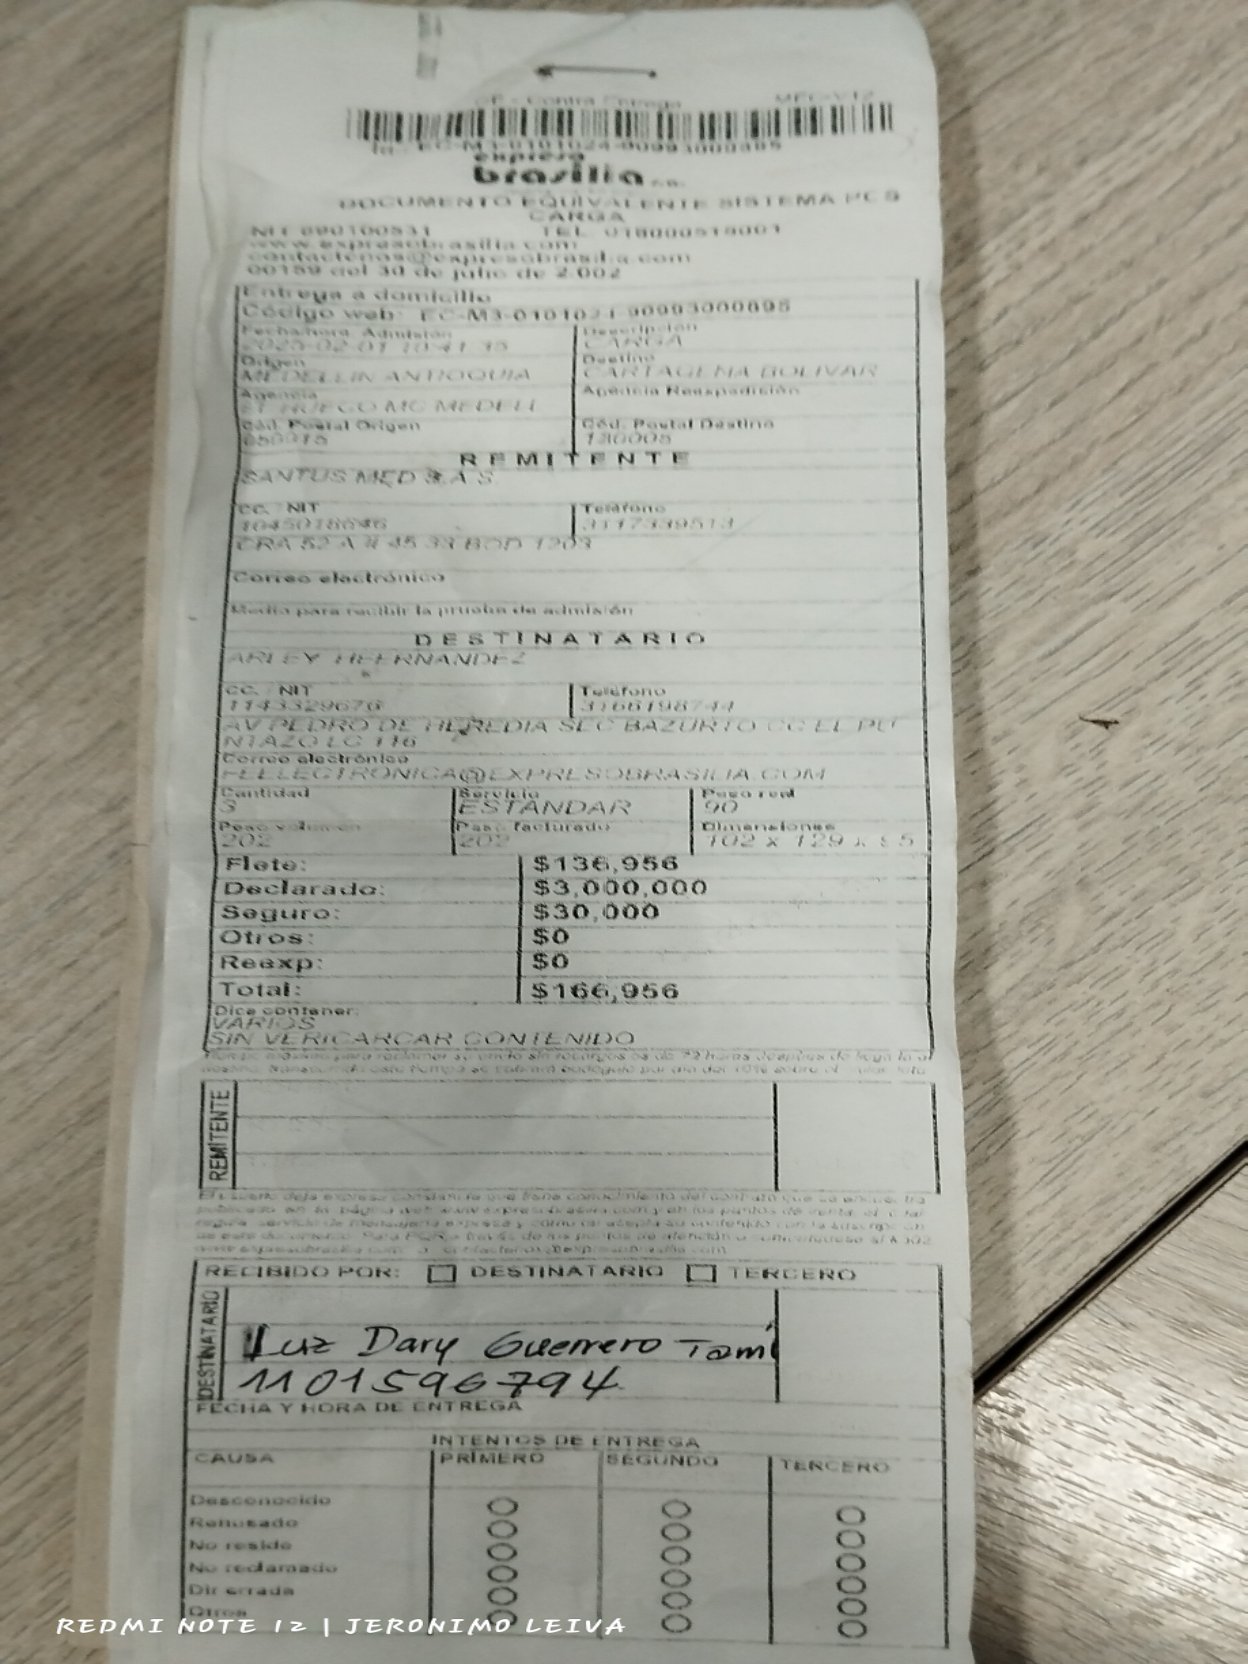 CE - Contra Entrega
expreso
brasilia S.A.
DOCUMENTO EQUIVALENTE SISTEMA PCS
CARGA
NIT 890100531 TEL. 018000519001
www.expresobrasilia.com
contactenos@expresobrasilia.com
00159 del 30 de julio de 2.002
Entrega a domicilio
Código web: EC-M3-0101024-90993000895
Fecha/hora Admisión Descripción
CARGA
Origen Destino
MEDELLIN ANTIOQUIA CARTAGENA BOLIVAR
Agencia Agencia Reexpedición
EL HUECO MC MEDELL
Cód. Postal Origen Cód. Postal Destino
050015 130005
REMITENTE
SANTUS MED S.A.S
CC. / NIT Teléfono
1045018646 3117339513
CRA 52 A # 45 33 BOD 1203
Correo electrónico
Medio para recibir la prueba de admisión
DESTINATARIO
ARLEY HEERNANDEZ
CC. / NIT Teléfono
1143329670 3166198744
AV PEDRO DE HEREDIA SEC BAZURTO CC EL PU
NTAZO LC 116
Correo electrónico
FEELECTRONICA@EXPRESOBRASILIA.COM
Cantidad Servicio Peso real
3 ESTANDAR 90
Peso volumen Peso facturado Dimensiones
202 202 102 x 129 x
Flete: $136,956
Declarado: $3,000,000
Seguro: $30,000
Otros: $0
Reexp: $0
Total: $166,956
Dice contener:
VARIOS
SIN VERICARCAR CONTENIDO
REMITENTE
RECIBIDO POR: DESTINATARIO TERCERO
DESTINATARIO
Luz Dary Guerrero Tami
1101596794
FECHA Y HORA DE ENTREGA
INTENTOS DE ENTREGA
CAUSA PRIMERO SEGUNDO TERCERO
Desconocido
Rehusado
No reside
No reclamado
Dir errada
Otros
REDMI NOTE 12 | JERONIMO LEIVA